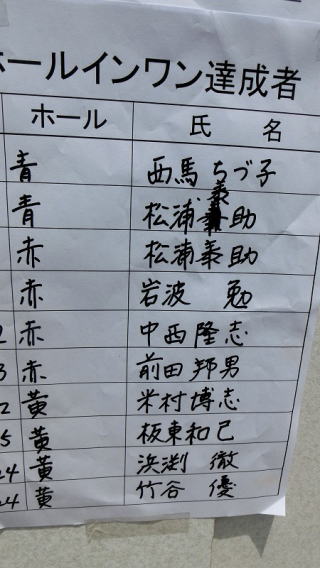 ホールインワン達成者
ホール 氏 名
青 西馬ちづ子
青 松浦助
赤 松浦助
赤 岩波 勉
2 赤 中西隆志
3 赤 前田邦男
2 黄 米村博志
5 黄 板東和己
24 黄 浜渕 徹
24 黄 竹谷 優